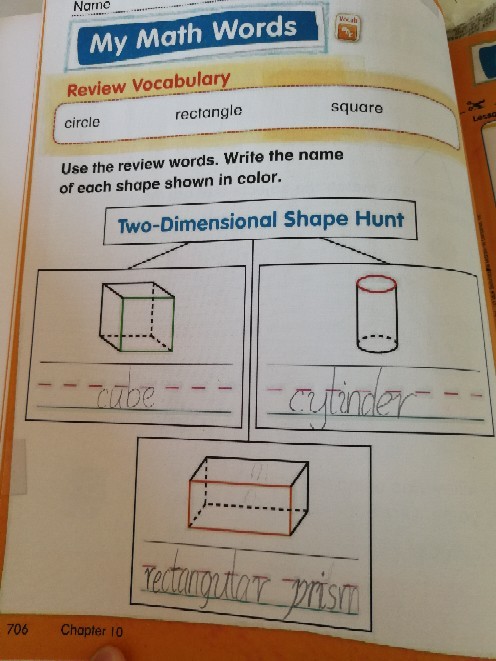 Name
My Math Words
Vocab
Review Vocabulary
circle rectangle square
Use the review words. Write the name
of each shape shown in color.
Two-Dimensional Shape Hunt
cube cylinder
rectangular prism
706 Chapter 10